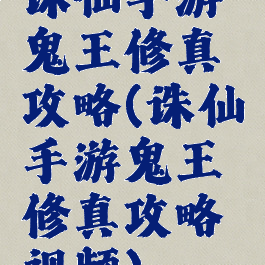 诛仙手游
鬼王修真
攻略(诛仙
手游鬼王
修真攻略
视频)